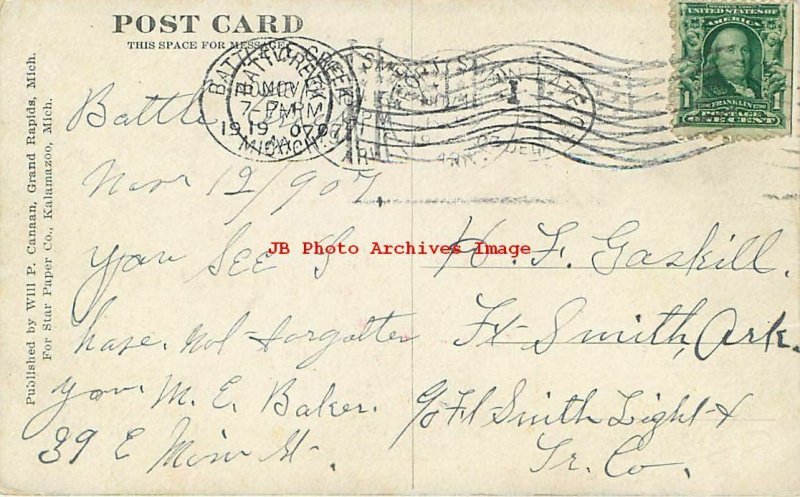 POST CARD
THIS SPACE FOR MESSAGE
Published by Will P. Canaan, Grand Rapids, Mich.
For Star Paper Co., Kalamazoo, Mich.
BATTLE CREEK
NOV
7 PM
1907
MICH.
SERIES 1902
UNITED STATES OF
AMERICA
1 FRANKLIN 1
POSTAGE
ONE CENT
Battle
Nov 12/907
you See I
have not forgotten
you M. E. Baker.
39 E Main St.
JB Photo Archives Image
H. F. Gaskill.
Ft Smith, Ark.
c/o Ft Smith Light &
Tr. Co.